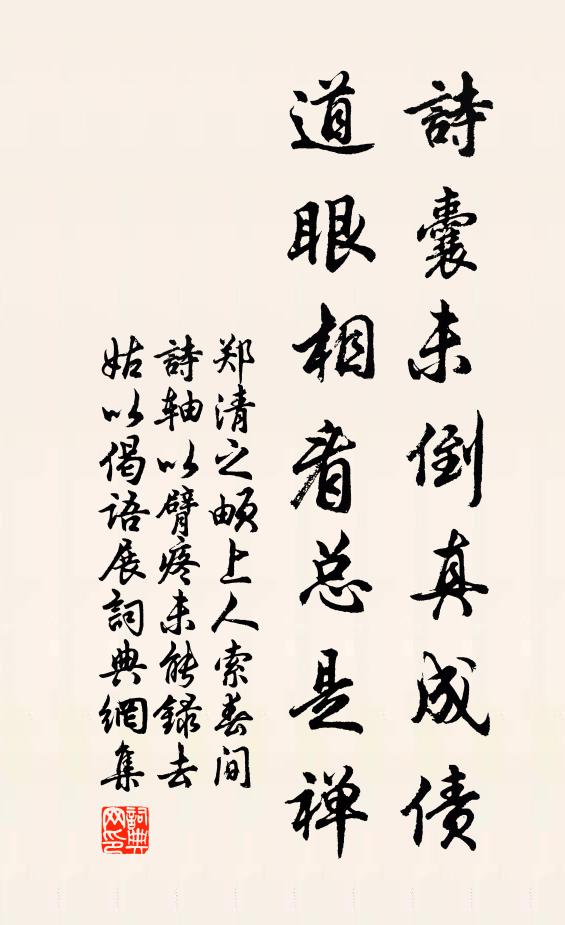 詩囊未倒真成债
道眼相看总是禅
郑清之頔上人索春间
詩轴以臂疼未能録去
姑以偈語展詞典網集
詞典网印